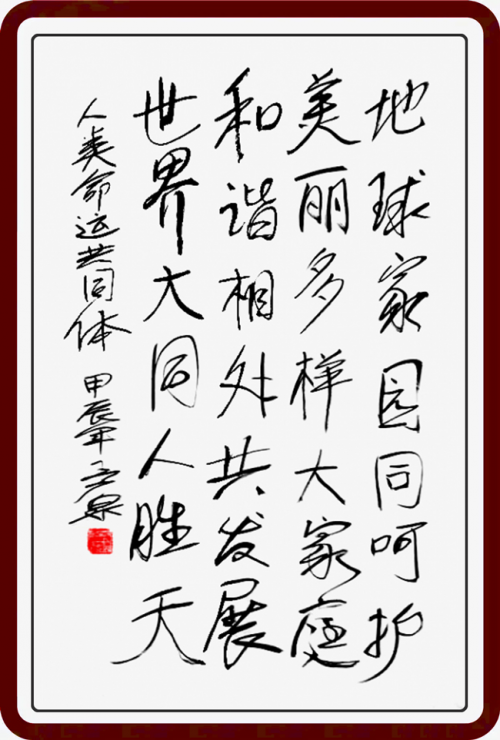 地球家园同呵护
美丽多样大家庭
和谐相处共发展
世界大同人胜天
人类命运共同体 甲辰年